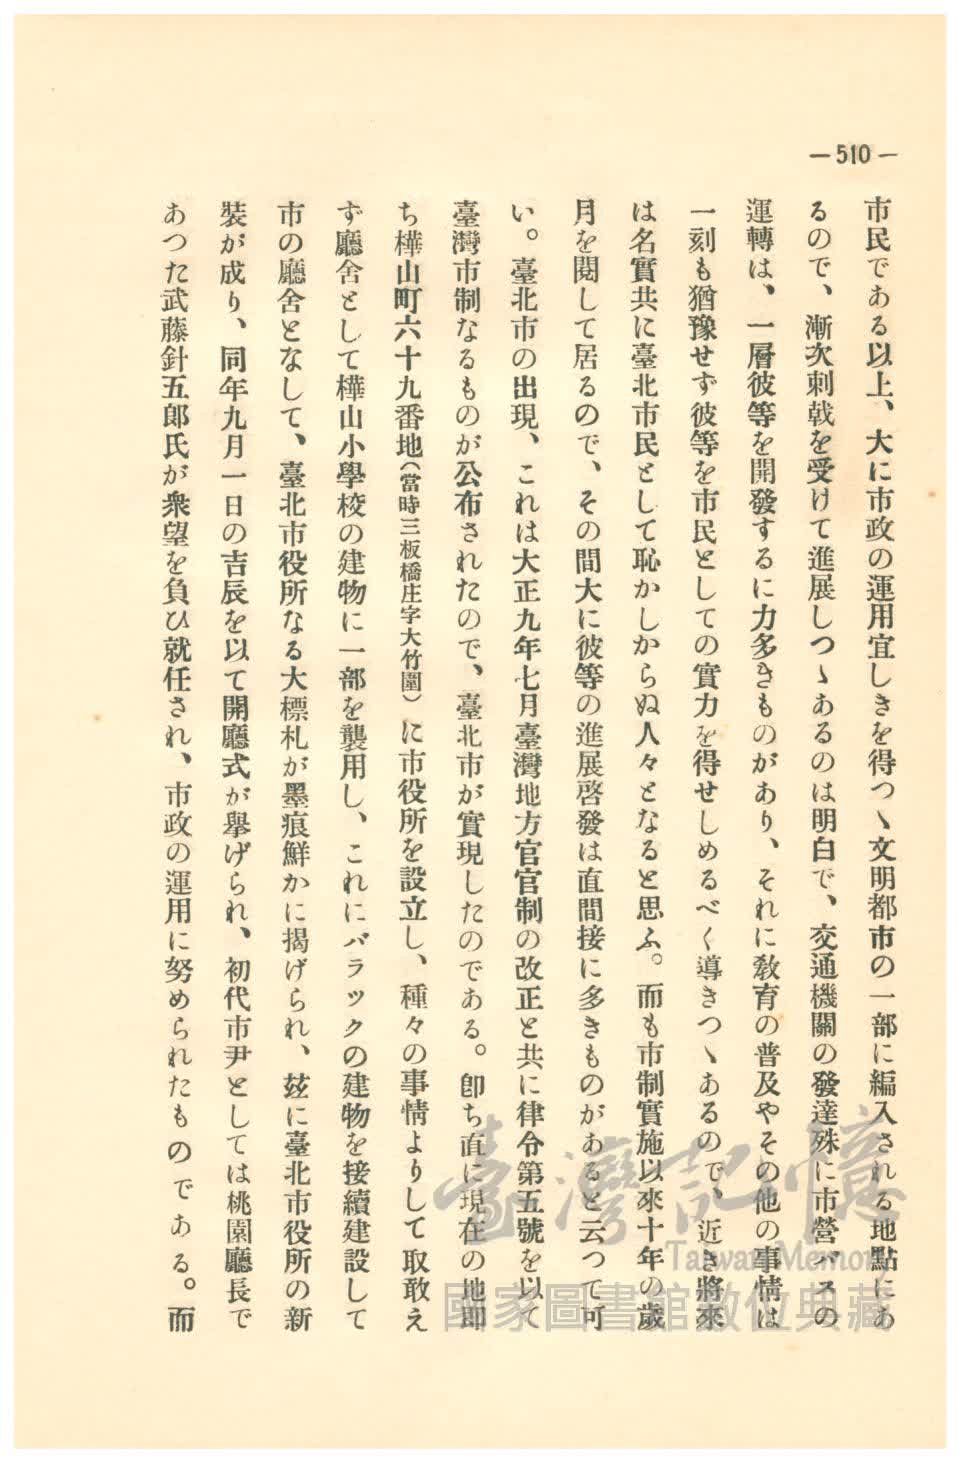 —510—
市民である以上、大に市政の運用宜しきを得つゝ文明都市の一部に編入される地點にあ
るので、漸次刺戟を受けて進展しつゝあるのは明白で、交通機關の發達殊に市營バスの
運轉は、一層彼等を開發するに力多きものがあり、それに敎育の普及やその他の事情は
一刻も猶豫せず彼等を市民としての實力を得せしめるべく導きつゝあるので、近き將來
は名實共に臺北市民として恥かしからぬ人々となると思ふ。而も市制實施以來十年の歲
月を閱して居るので、その間大に彼等の進展啓發は直間接に多きものがあると云つて可
い。臺北市の出現、これは大正九年七月臺灣地方官官制の改正と共に律令第五號を以て
臺灣市制なるものが公布されたので、臺北市が實現したのである。卽ち直に現在の地卽
ち樺山町六十九番地（當時三板橋庄字大竹圍）に市役所を設立し、種々の事情よりして取敢え
ず廳舍として樺山小學校の建物に一部を襲用し、これにバラックの建物を接續建設して
市の廳舍となして、臺北市役所なる大標札が墨痕鮮かに揭げられ、玆に臺北市役所の新
裝が成り、同年九月一日の吉辰を以て開廳式が擧げられ、初代市尹としては桃園廳長で
あつた武藤針五郎氏が衆望を負ひ就任され、市政の運用に努められたものである。而
臺灣記憶
Taiwan Memory
國家圖書館數位典藏